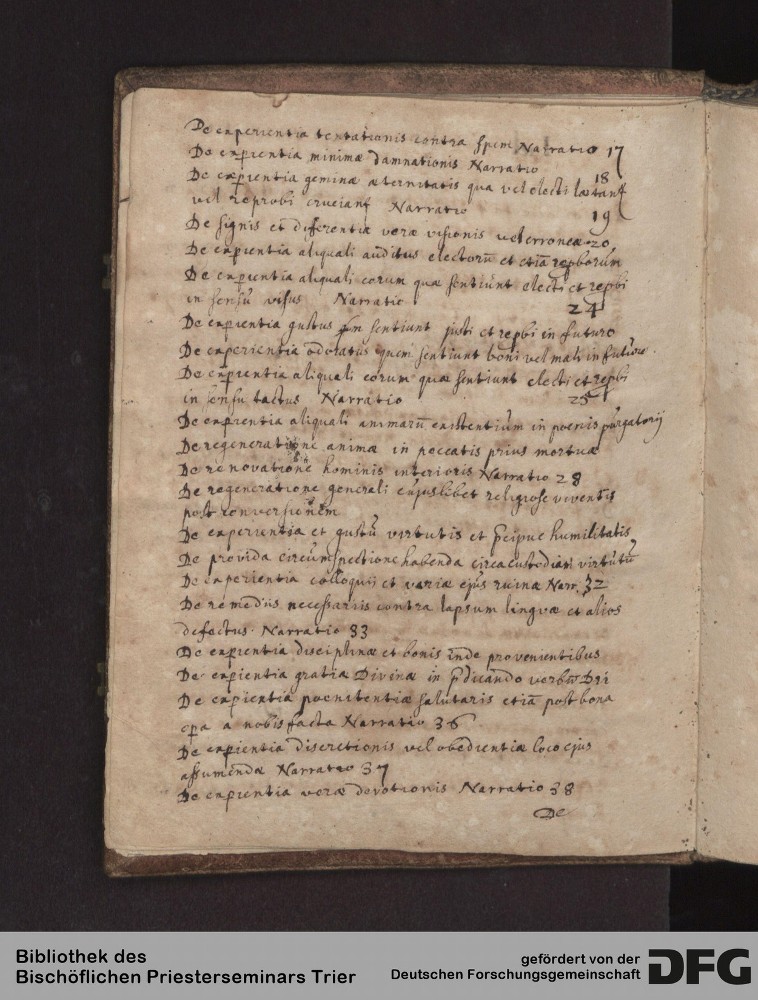 De experientia tentationis contra spem Narratio 17
De expientia minimæ damnationis Narratio
18
De expientia geminæ æternitatis qua vel electi lætant
vel reprobi cruciant Narratio
19
De signis et differentia veræ visionis vel erroneæ 20
De expientia aliquali auditus electorū et etiā repborūm
De expientia aliquali eorum quæ sentiunt electi et repbi
in sensu visus Narratio 24
De expientia gustus sentiunt justi et repbi in futuro
De experientia odoratus quem sentiunt boni vel mali in futuro
De expientia aliquali eorum quæ sentiunt electi et repbi
in sensu tactus Narratio 25
De expientia aliquali animarū existentium in poenis purgatorij
De regeneratione animæ in peccatis prius mortuæ
De renovatione hominis interioris Narratio 28
De regeneratione generali cujuslibet religiose viventis
post conversionem
De experientia et gustu virtutis et pcipue humilitatis
De provida circumspectione habenda circa custodiam virtutū
De experientia colloquii et variæ ejus ruinæ Narr. 32
De remediis necessariis contra lapsum linguæ et alios
defectus. Narratio 33
De expientia disciplinæ et bonis inde provenientibus
De expientia gratiæ Divinæ in pdicando verbū Dei
De expientia poenitentiæ salutaris etiā post bona
opa a nobis facta Narratio 36
De expientia discretionis vel obedientiæ loco ejus
assumendæ Narratio 37
De expientia veræ devotionis Narratio 38
De
Bibliothek des
Bischöflichen Priesterseminars Trier
gefördert von der
Deutschen Forschungsgemeinschaft
DFG